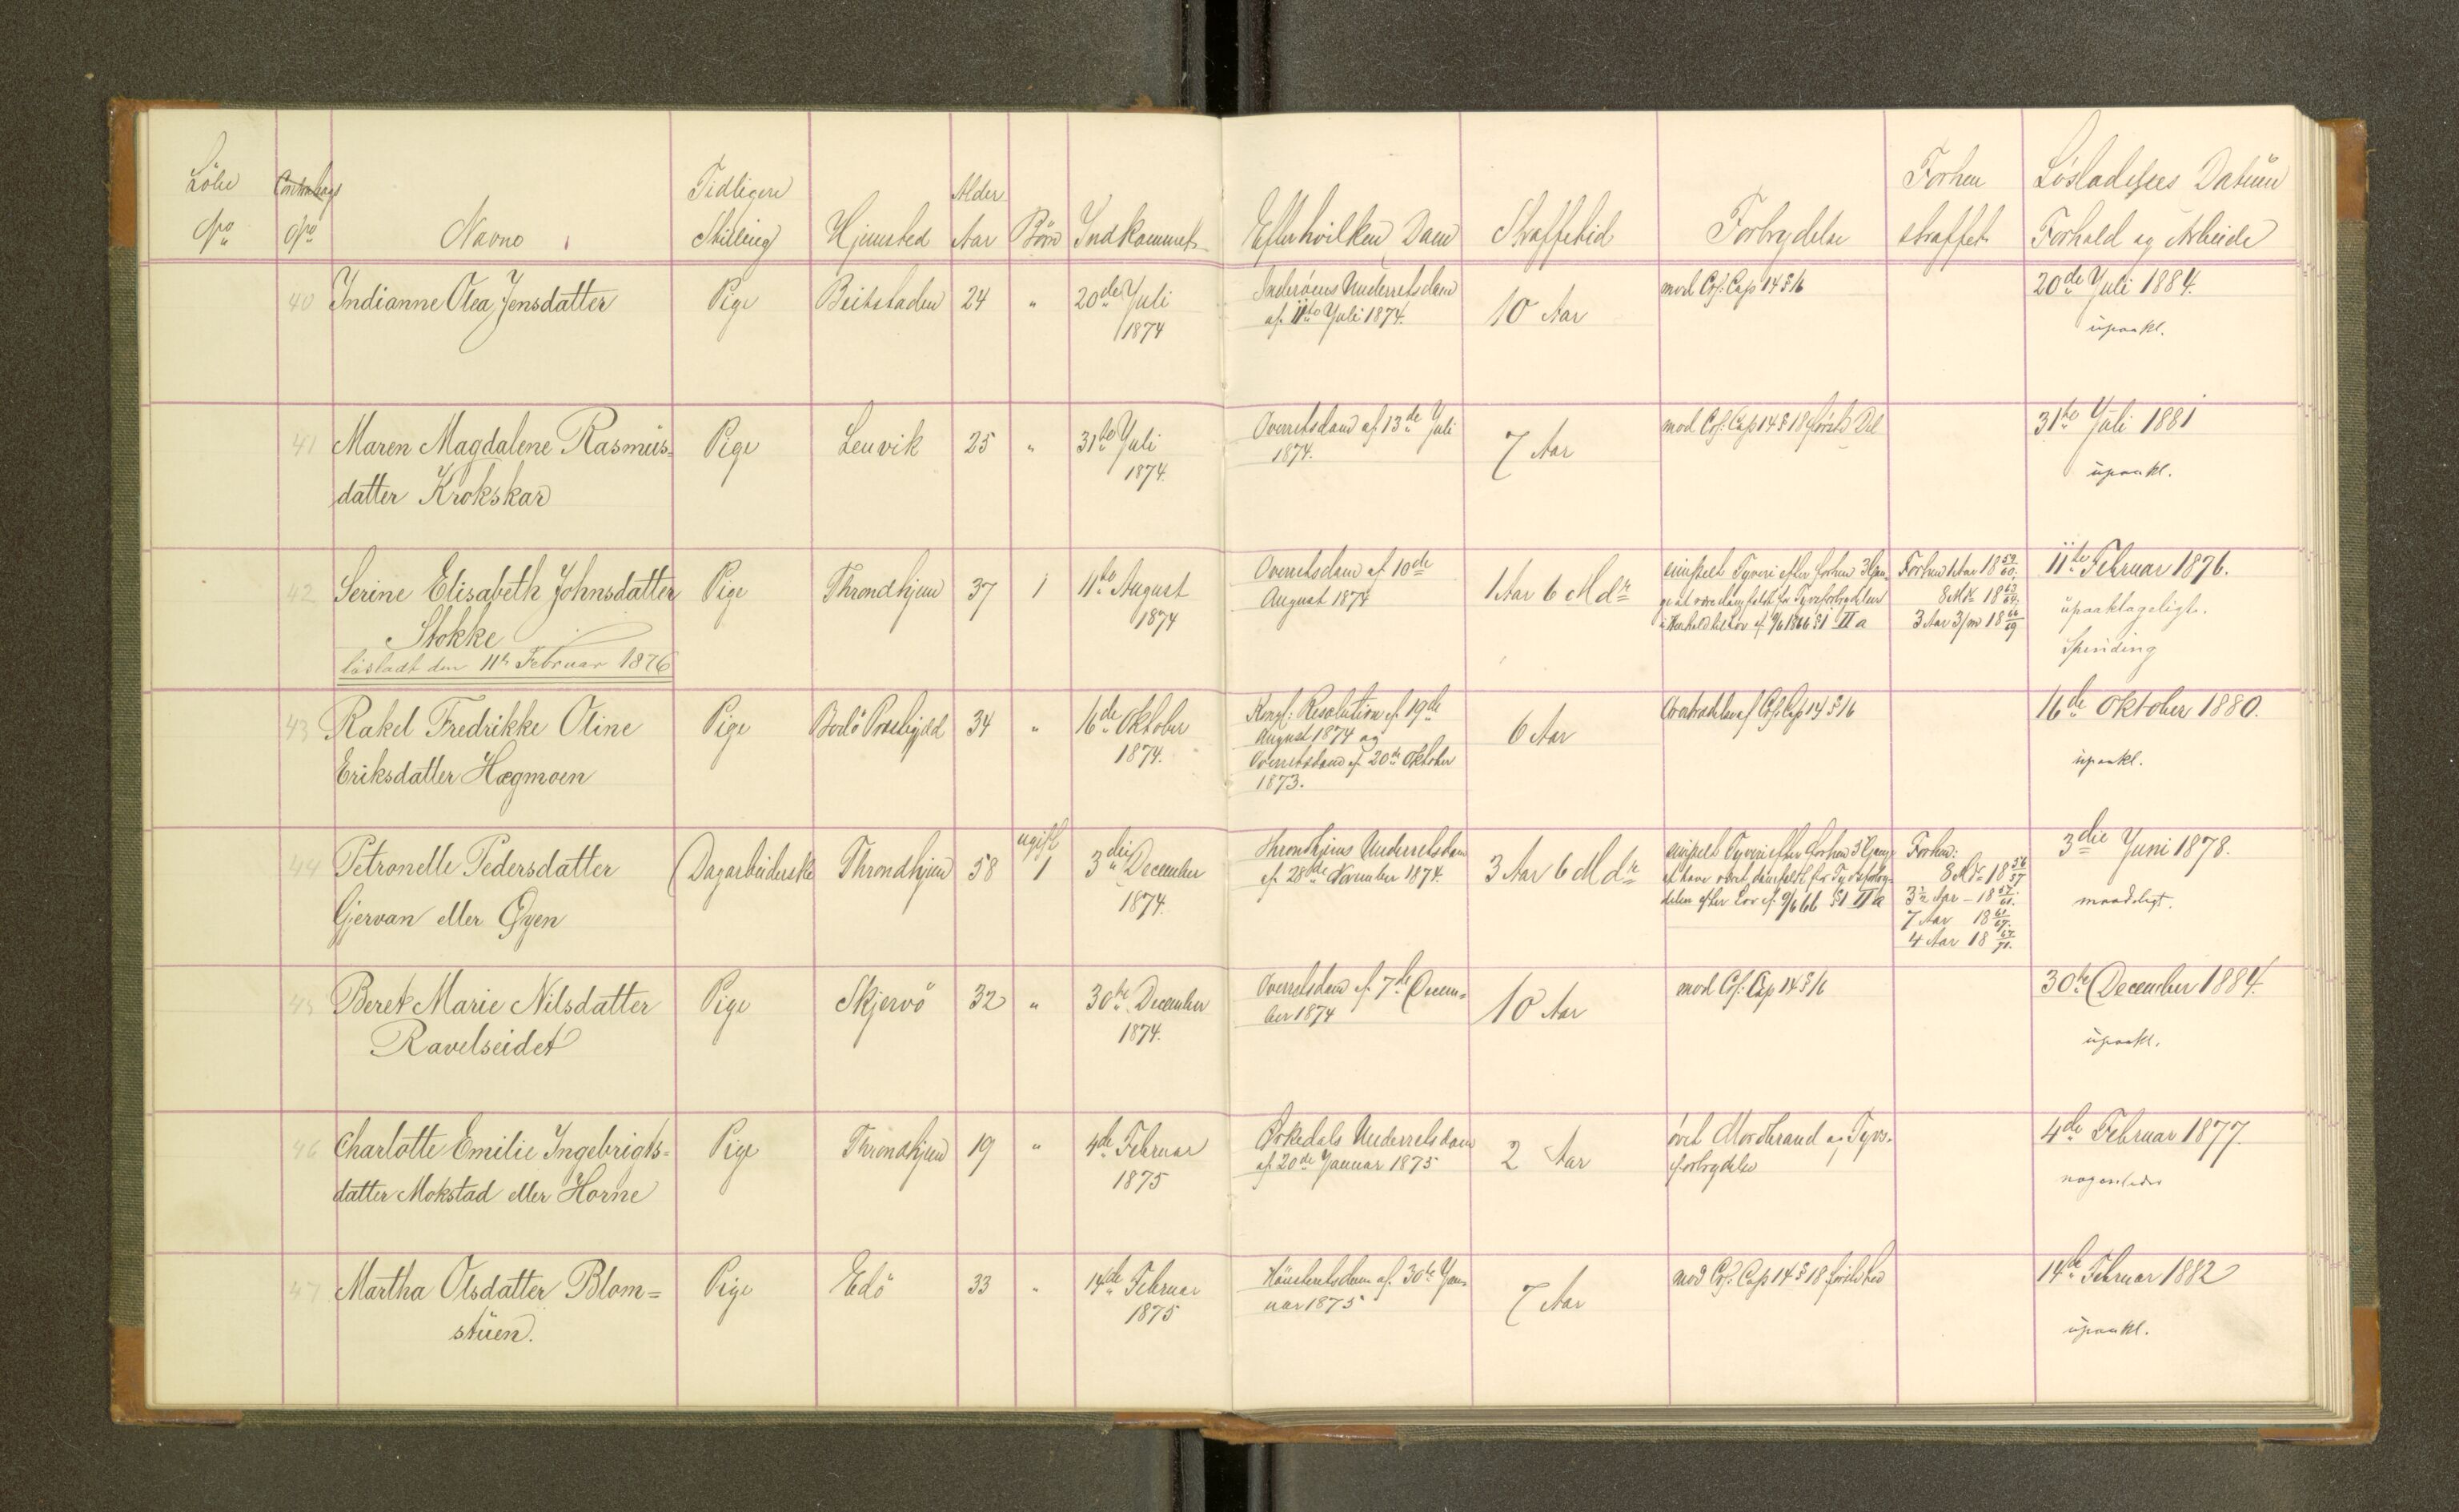 Löbe Tidligere Alder Forhen Løsladelses Datum
No No Navne Stilling Hjemsted Aar Børn Indkommet Efter hvilken Dom Straffetid Forbrydelse straffet Forhold og Arbeide
40 Indianne Olea Jensdatter Pige Beitstaden 24 " 20de Juli Inderøens Underretsdom 10 Aar mod Crl: Cap 14 § 16 20de Juli 1884.
1874 af 11te Juli 1874. upaakl.
41 Maren Magdalene Rasmus= Pige Lenvik 25 " 31te Juli Overretsdom af 13de Juli 7 Aar mod Crl: Cap 14 § 18 første Del 31te Juli 1881
datter Krokskar 1874. 1874. upaakl.
42 Serine Elisabeth Johnsdatter Pige Throndhjem 37 1 11te August Overretsdom af 10de 1 Aar 6 Mdr simpelt Tyveri efter forhen 3 Gan= Forhen 1 Aar 18 59/60. 11te Februar 1876.
Stokke 1874 August 1874 ge at være domfældt for Tyvsforbrydelser 8 Mdr 18 63/64. upaaklageligt.
løsladt den 11te Februar 1876 i Henhold til Lov af 9/6 1866 § 1 II a 3 Aar 3/m 18 66/69 Spinding
43 Rakel Fredrikke Oline Pige Bodö Præstegjeld 34 " 16de Oktober Kongl: Resolution af 19de 6 Aar Overtrædelse af Crl: Cap 14 § 16 16de Oktober 1880.
Eriksdatter Hægmoen 1874. August 1874 og upaakl.
Overretsdom af 20de Oktober
1873.
44 Petronelle Pedersdatter Dagarbeiderske Throndhjem 58 ugift 1 3die December Thronhjems Underretsdom 3 Aar 6 Mdr simpelt Tyveri efter forhen 3 Gange Forhen: 3die Juni 1878.
Gjervan eller Øyen 1874. af 28de November 1874. at have været domfældt for Tyvsforbry= 8 Mdr 18 56/57 maadeligt.
delser efter Lov af 9/6 66 § 1 II a 3 Aar – 18 57/61.
7 Aar 18 61/67.
4 Aar 18 67/71.
45 Beret Marie Nilsdatter Pige Skjervö 32 " 30te December Overretsdom af 7de Decem= 10 Aar mod Crl: Cap 14 § 16 30te December 1884.
Ravelseidet 1874. ber 1874 upaakl.
46 Charlotte Emilie Ingebrigts= Pige Throndhjem 19 " 4de Februar Orkedals Underretsdom 2 Aar øvet Mordbrand og Tyvs= 4de Februar 1877.
datter Mokstad eller Horne 1875 af 20de Januar 1875 forbrydelse nogenledes
47 Martha Olsdatter Blom= Pige Edö 33 " 14de Februar Höiesteretsdom af 30te Jan= 7 Aar mod Crl: Cap 14 § 18 første Led 14de Februar 1882
stuen. 1875 uar 1875 upaakl.